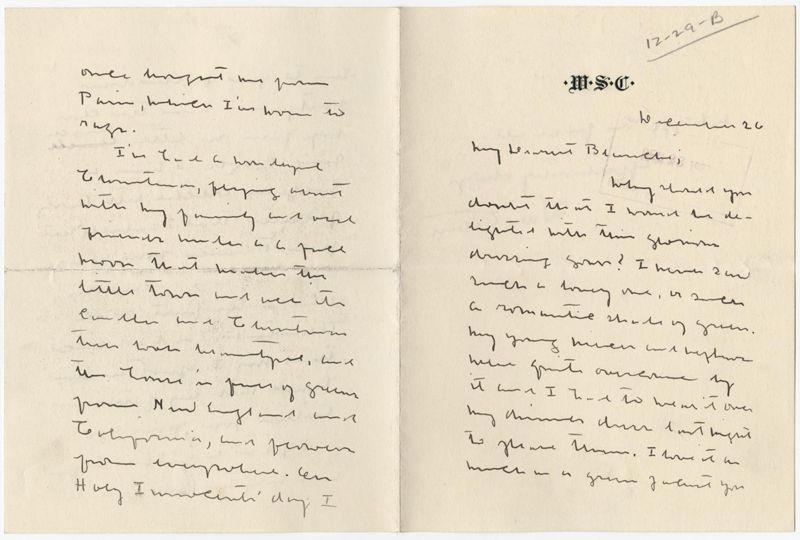 12-29-B
·W·S·C·
December 26
My Dearest Blanche;
Why should you
doubt that I would be de-
lighted with this glorious
dressing gown? I never saw
such a lovely one, or such
a romantic shade of green.
My young nieces and nephew
were quite overcome by
it and I had to wear it over
my dinner dress last night
to please them. I love it as
much as a green jacket you
once brought me from
Paris, which I've worn to
rags.
I've had a wonderful
Christmas, flying about
with my family and old
friends under a full
moon that makes this
little town and all its
candles and Christmas
trees look beautiful, and
the house is full of greens
from New England and
California, and flowers
from everywhere. On
Holy Innocents' day I